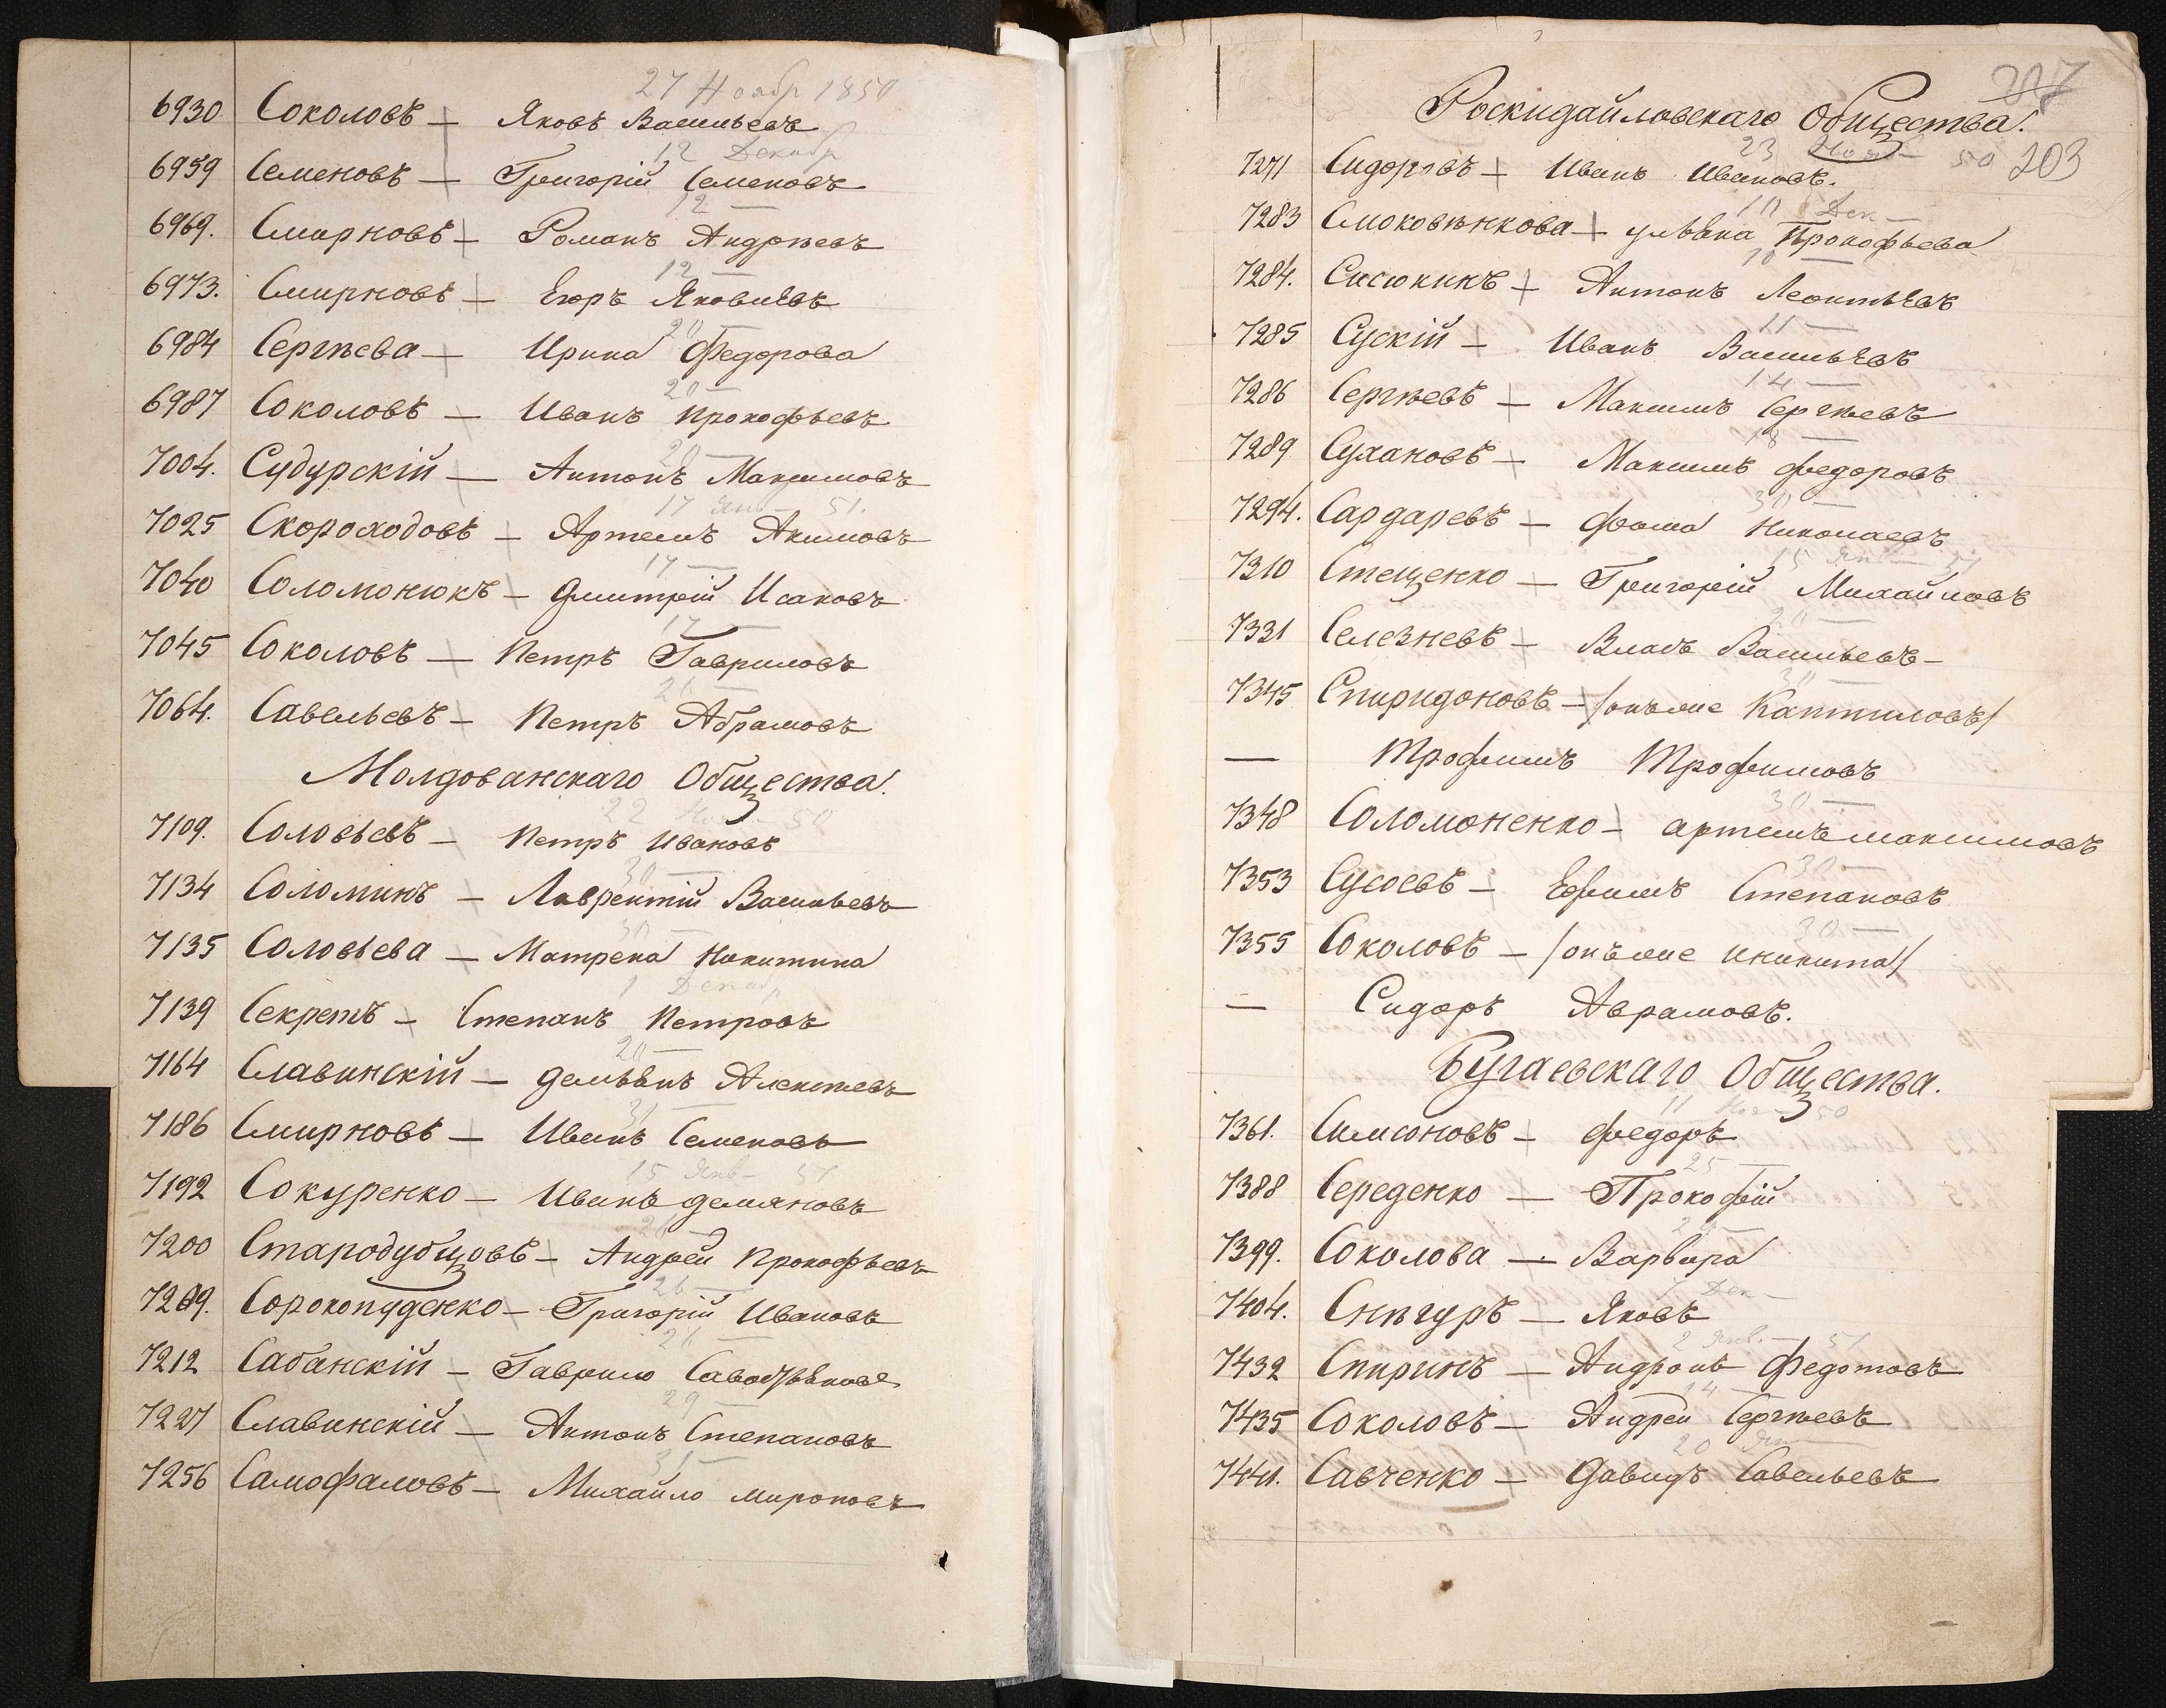 27 Ноябр 1850
6930 Соколовъ — Яковъ Васильевъ
12 Декабр
6959 Семеновъ — Григорій Семеновъ
12 —
6969. Смирновъ — Романъ Андрѣевъ
12 —
6973. Смирновъ — Егоръ Яковлевъ
20 —
6984 Сергѣева — Ирина Федорова
20 —
6987 Соколовъ — Иванъ Прокофьевъ
20 —
7004. Судурскій — Антонъ Максимовъ
17 Янв — 51.
7025 Скороходовъ — Артемъ Акимовъ
17 —
7040 Соломонюкъ — Дмитрій Исаковъ
17 —
7045 Соколовъ — Петръ Гавриловъ
26 —
7064. Савельевъ — Петръ Абрамовъ
Молдованскаго Общества.
22 Но. 50
7109. Соловьевъ — Петръ Ивановъ
30 —
7134 Соломинъ — Лаврентій Васильевъ
30 —
7135 Соловьева — Матрена Никитина
1 Декабр
7139 Секретъ — Степанъ Петровъ
20 —
7164 Славинскій — Демьянъ Алексѣевъ
31 —
7186 Смирновъ — Иванъ Семеновъ
15 Янв — 51
7192 Сокуренко — Иванъ Демяновъ
26 —
7200 Стародубцовъ — Андрей Прокофьевъ
26 —
7209. Сорокопуденко — Григорій Ивановъ
26 —
7212 Сабанскій — Гаврило
29 —
7227 Славинскій — Антонъ Степановъ
31 —
7256 Самофаловъ — Михайло Мироновъ
207
Роскидайловскаго Общества.
23 Нояб — 50 203
7271 Сидоровъ — Иванъ Ивановъ.
10 Дек —
7283 Смоковѣнкова — Ульяна Прокофьева
10 —
7284. Сисюкинъ — Антонъ Леонтьевъ
11 —
7285 Сускій — Иванъ Васильевъ
14 —
7286 Сергѣевъ — Максимъ Сергѣевъ
18 —
7289 Сухановъ — Максимъ Федоровъ
30 —
7294. Сардаревъ — Фома Николаевъ
15 Янв — 51
7310 Стещенко — Григорій Михайловъ
20 —
7331 Селезневъ — Власъ Васильевъ —
30 —
7345 Спиридоновъ — /онъ же Каптиловъ/
— Трофимъ Трофимовъ
30. —
7348 Соломоненко — Артемъ Максимовъ
30 —
7353 Сусоевъ — Ефимъ Степановъ
30. —
7355 Соколовъ — /онъ же Никита/
— Сидоръ Аврамовъ.
Бугаевскаго Общества.
11 Ноя — 50
7361. Симсоновъ — Федоръ
25 —
7388 Середенко — Прокофій
7399. Соколова — Варвара
7 Дек —
7404. Снѣгуръ — Яковъ
2 Янв. — 51
7432 Спиринъ — Андронъ Федотовъ
14 —
7435 Соколовъ — Андрей Сергѣевъ
20 Ян
7441. Савченко — Давидъ Савельевъ